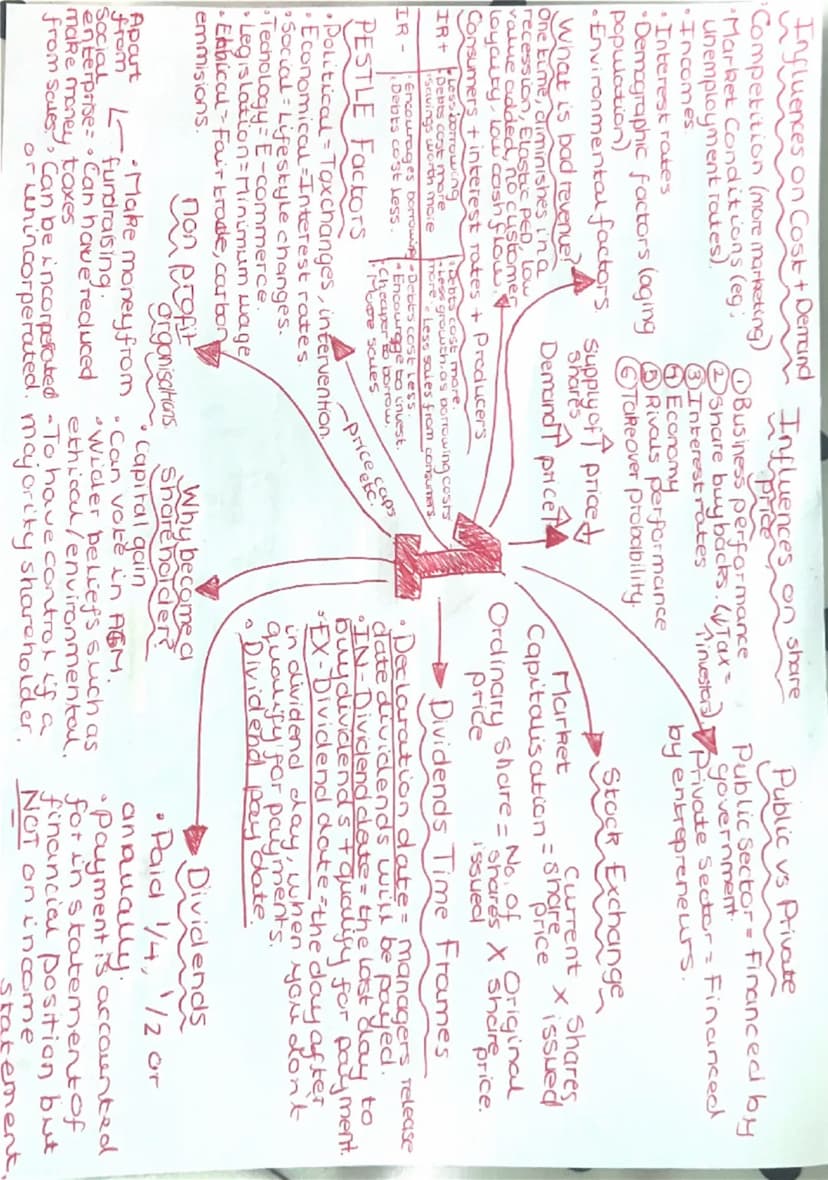 Influences on Cost + Demand
• Competition (more marketing)
• Market Conditions (eg;
unemployment rates).
• Incomes
• Interest rates
• Demographic factors (aging
population)
• Environmental factors.
What is bad revenue?
One time, diminishes in a
recession, Elastic PED, low
value added, no customer
loyalty, low cash flow.
Consumers + interest rates + Producers
IR+
• Less borrowing
• Debts cost more
• Savings worth more
• Debts cost more.
• Less growth, as borrowing costs
more. • Less sales from consumers
IR -
• Encourages borrowing
• Debts cost less.
• Debts cost less.
• Encourage to invest.
• Cheaper to borrow.
• More sales
PESTLE Factors
• Political = Tax changes, intervention.
price caps
etc.
• Economical = Interest rates.
• Social = Lifestyle changes.
• Technology = E-commerce.
• Legislation = Minimum wage
• Ethical = Fair trade, carbon
emmisions.
Non profit
organisations
• Make money from
fundraising.
• Can have reduced
taxes
• Can be incorporated
or unincorporated.
Apart
from
social
enterprise =
make money
from sales.
Influences on share
price
① Business performance
② Share buybacks. (↓Tax =
↑investors)
③ Interest rates
④ Economy
⑤ Rivals performance
⑥ Takeover probability.
Supply of ↑ price ↓
shares
Demand ↑ price ↑
Why become a
shareholder?
• Capital gain
• Can vote in AGM.
• Wider beliefs such as
ethical/environmental.
• To have control if a
majority shareholder.
Public vs Private
Public Sector = Financed by
government.
Private Sector = Financed
by entrepreneurs.
Stock Exchange
Market Current Shares
Capitalisation = share X issued
price
Ordinary Share = No. of Original
price shares X share
issued price.
Dividends Time Frames
• Declaration date = managers release
date dividends will be payed.
• IN-Dividend date = the last day to
buy dividends + qualify for payment.
• EX-Dividend date = the day after
in dividend day, when you don't
qualify for payments.
• Dividend pay date
Dividends
• Paid 1/4, 1/2 or
annually.
• Payment is accounted
for in statement of
financial position but
NOT on income
statement.